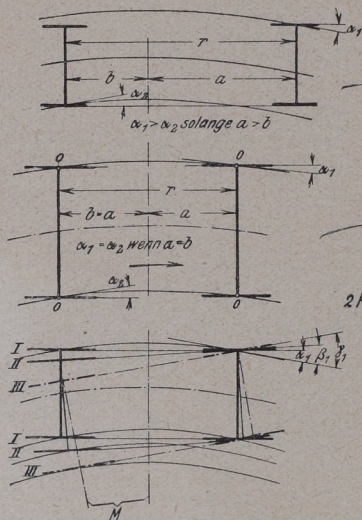 α₁
r
b
a
α₂
α₁ > α₂ solange a > b
O
O
α₁
r
b=a
a
α₁ = α₂ wenn a=b
α₂
O
O
I
II
III
α₁ β₁ γ₁
I
II
III
M